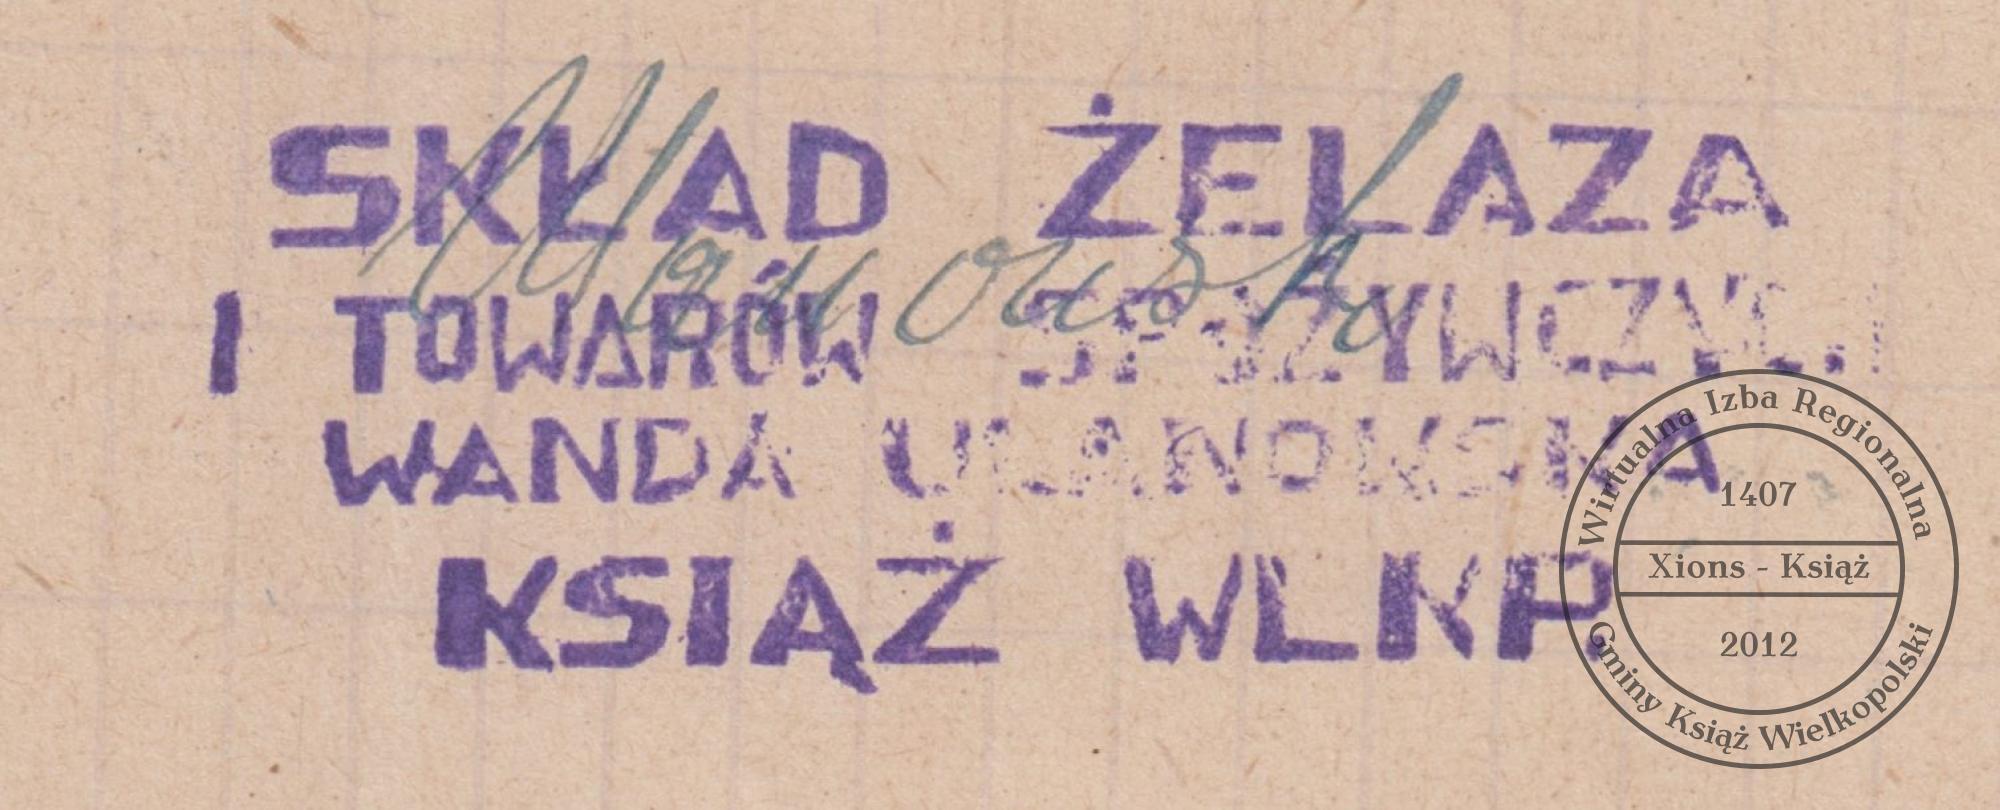 SKŁAD ŻELAZA
I TOWARÓW SPOŻYWCZYCH
WANDA ULANOWSKA
KSIĄŻ WLKP.
Wirtualna Izba Regionalna
1407
Xions - Książ
2012
Gminy Książ Wielkopolski